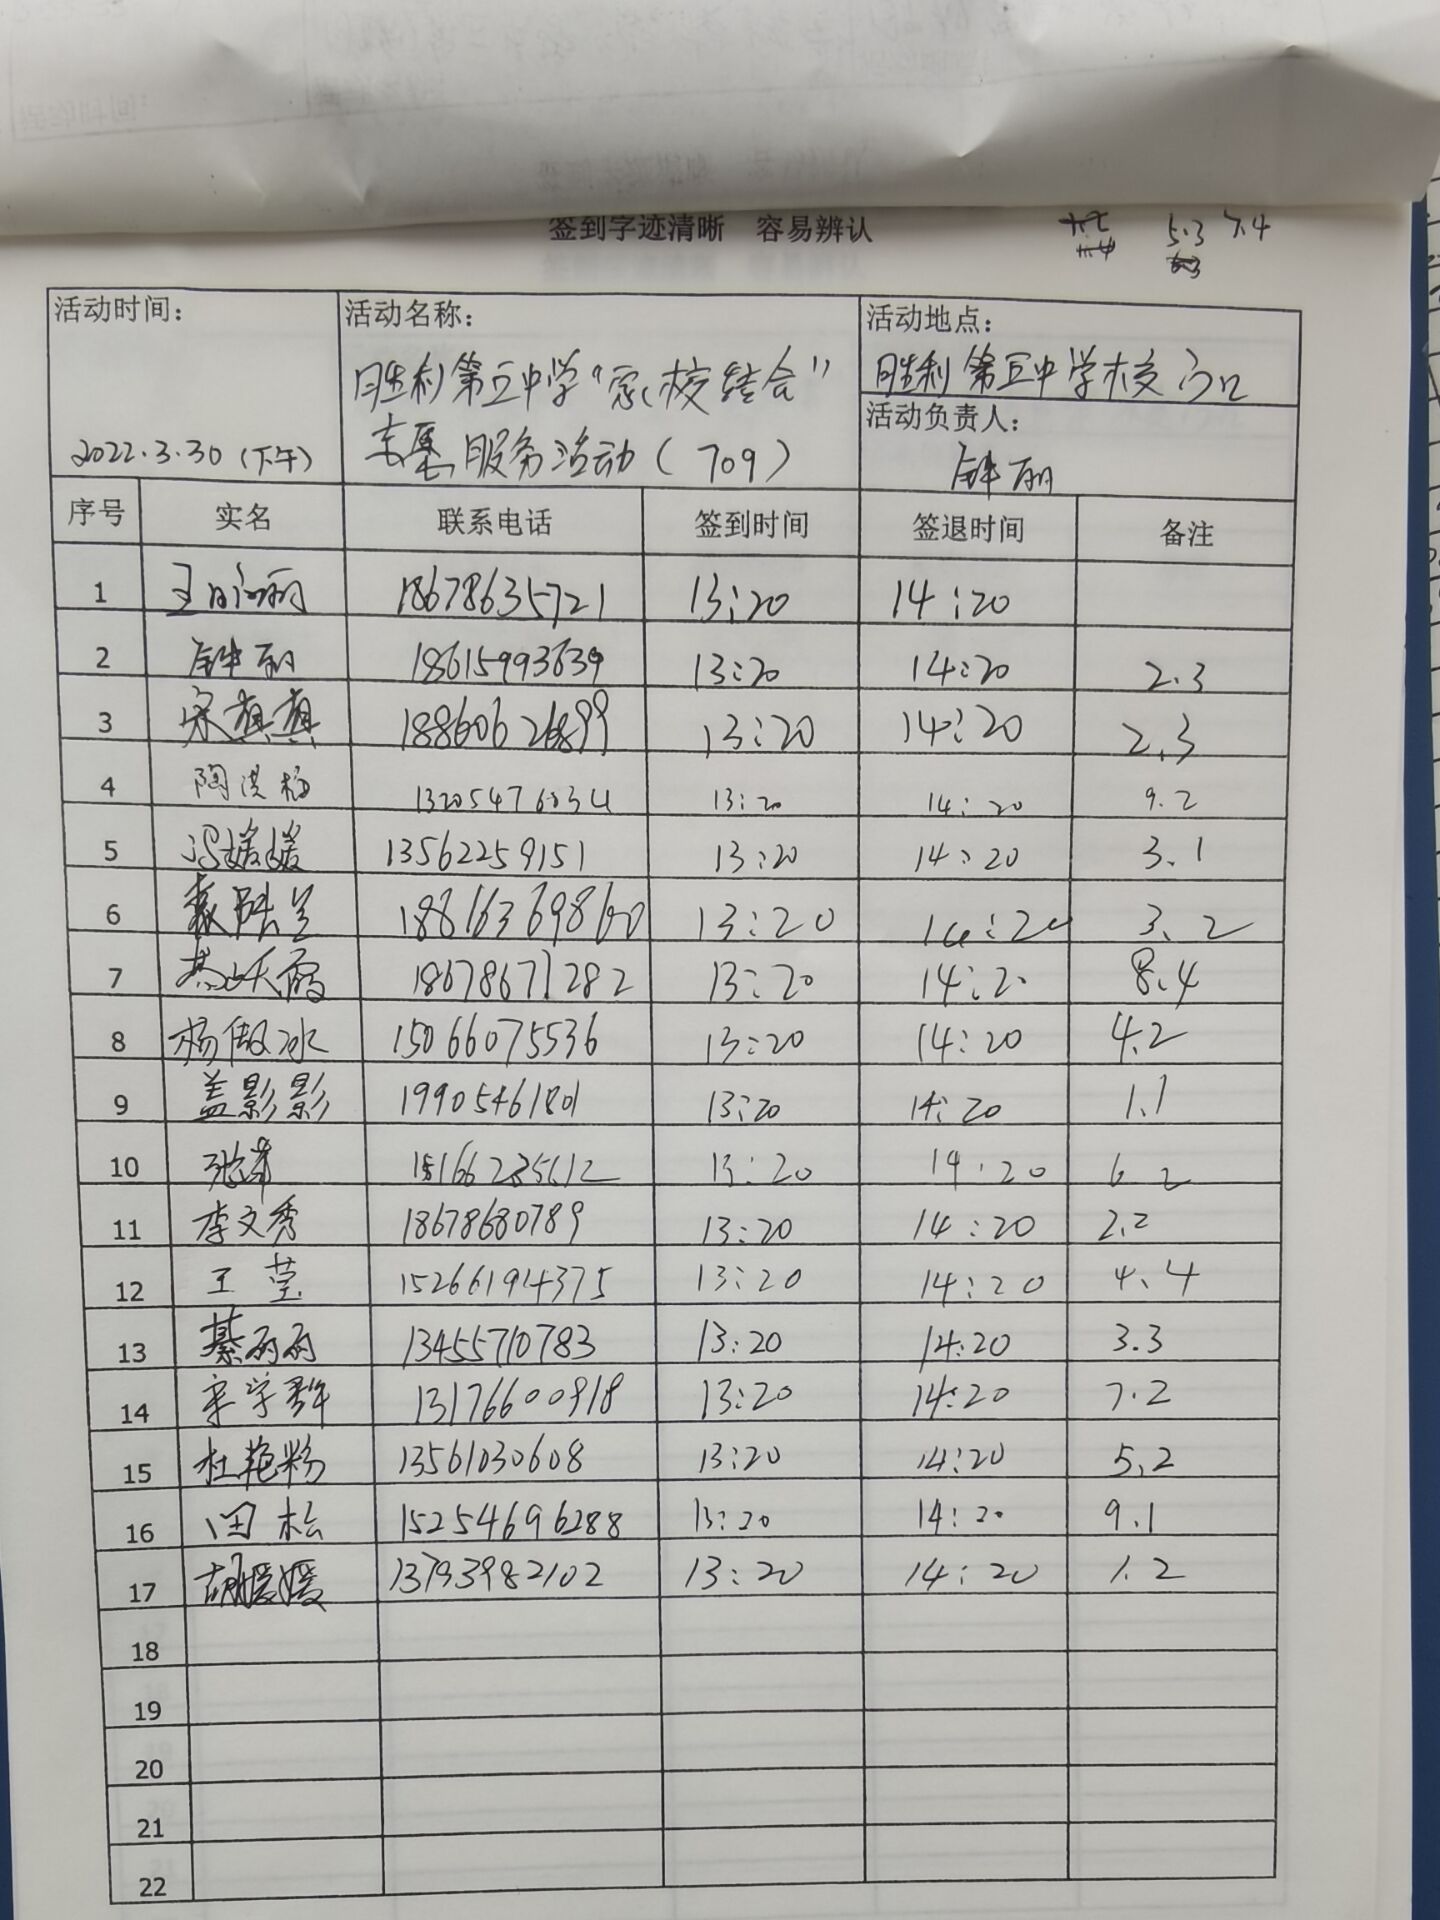 签到字迹清晰 容易辨认
5.3 7.4
活动时间： 活动名称： 活动地点：
胜利第五中学“家校结合” 胜利第五中学校门口
活动负责人：
2022.3.30(下午) 志愿服务活动(709) 钟丽
序号 实名 联系电话 签到时间 签退时间 备注
1 18678635721 13:20 14:20
2 钟丽 18615993639 13:20 14:20 2.3
3 宋真真 18860626899 13:20 14:20 2.3
4 陶洪梅 13205476034 13:20 14:20 9.2
5 冯媛媛 13562259151 13:20 14:20 3.1
6 18816369860 13:20 14:20 3.2
7 18678671282 13:20 14:20 8.4
8 杨傲冰 15066075536 13:20 14:20 4.2
9 盖影影 19905461801 13:20 14:20 1.1
10 13:20 14:20 6.2
11 李文秀 18678680789 13:20 14:20 2.2
12 王莹 15266194375 13:20 14:20 4.4
13 綦丽丽 13455710783 13:20 14:20 3.3
14 宋学群 13176600918 13:20 14:20 7.2
15 杜艳粉 13561030608 13:20 14:20 5.2
16 田松 15254696288 13:20 14:20 9.1
17 胡媛媛 13793982102 13:20 14:20 1.2
18
19
20
21
22